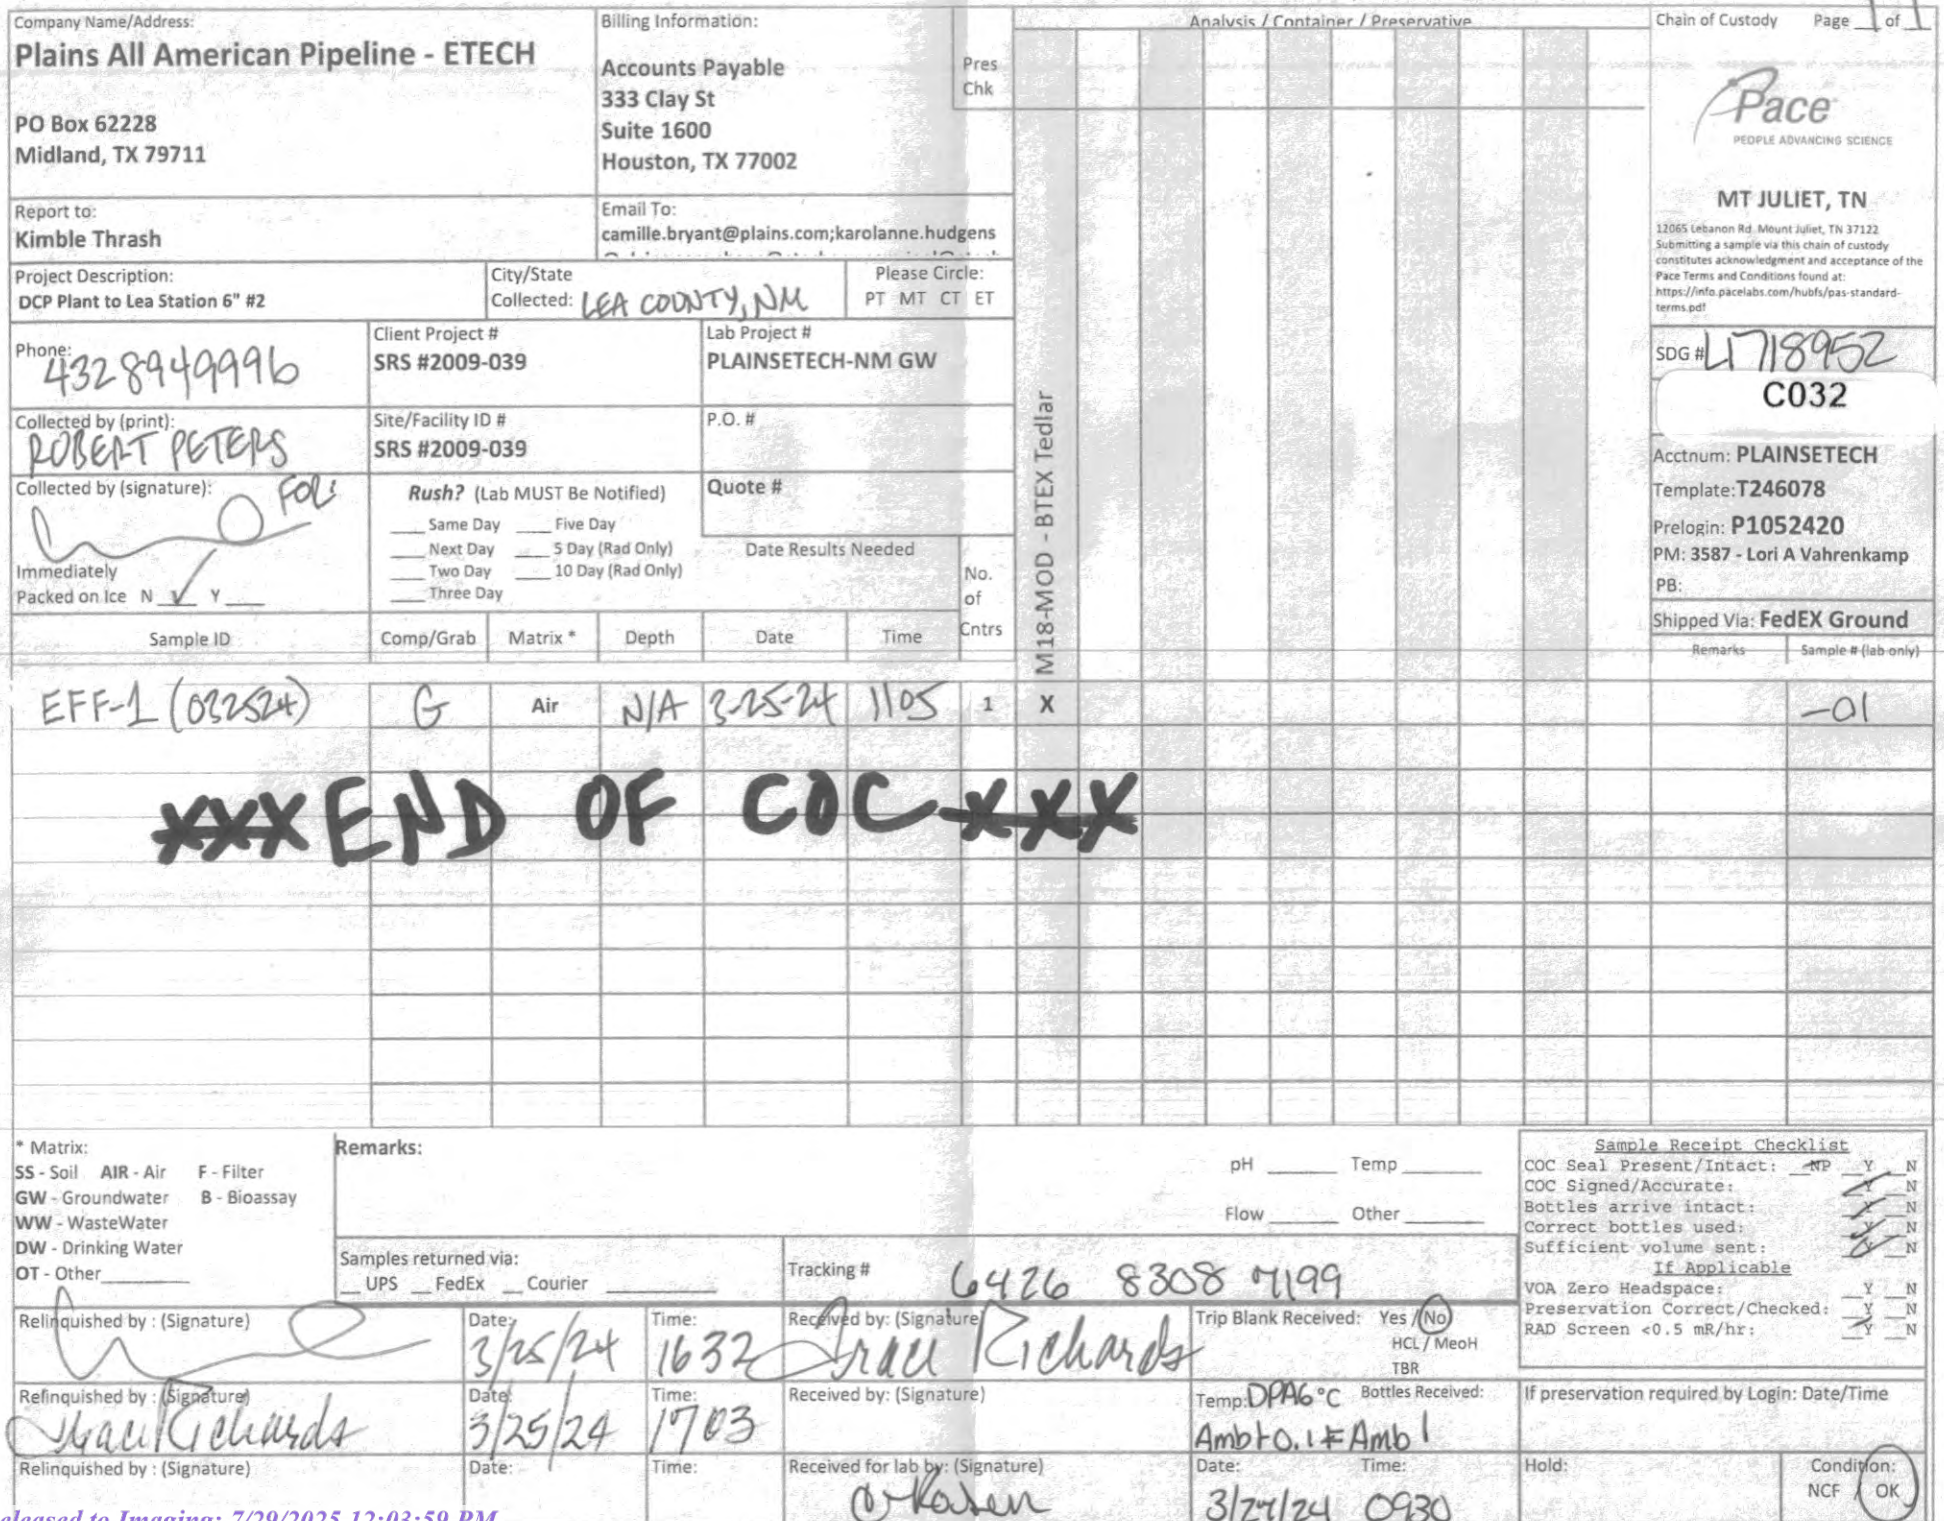 Company Name/Address:
Plains All American Pipeline - ETECH
PO Box 62228
Midland, TX 79711
Billing Information:
Accounts Payable
333 Clay St
Suite 1600
Houston, TX 77002
Pres
Chk
Analysis / Container / Preservative
Chain of Custody Page 1 of 1
Pace
PEOPLE ADVANCING SCIENCE
MT JULIET, TN
12065 Lebanon Rd Mount Juliet, TN 37122
Submitting a sample via this chain of custody
constitutes acknowledgment and acceptance of the
Pace Terms and Conditions found at:
https://info.pacelabs.com/hubfs/pas-standard-
terms.pdf
Report to:
Kimble Thrash
Email To:
camille.bryant@plains.com;karolanne.hudgens
Project Description:
DCP Plant to Lea Station 6" #2
City/State
Collected: LEA COUNTY, NM
Please Circle:
PT MT CT ET
Phone: 4328949996
Client Project #
SRS #2009-039
Lab Project #
PLAINSETECH-NM GW
SDG # L1718952
C032
Collected by (print):
ROBERT PETERS
Site/Facility ID #
SRS #2009-039
P.O. #
Acctnum: PLAINSETECH
Template:T246078
Prelogin: P1052420
PM: 3587 - Lori A Vahrenkamp
PB:
Shipped Via: FedEX Ground
Collected by (signature):
Rush? (Lab MUST Be Notified)
Same Day Five Day
Next Day 5 Day (Rad Only)
Two Day 10 Day (Rad Only)
Three Day
Quote #
Date Results Needed
Immediately
Packed on Ice N ✓ Y
No.
of
Cntrs
M18-MOD - BTEX Tedlar
Sample ID Comp/Grab Matrix * Depth Date Time
Remarks Sample # (lab only)
EFF-1 (032524) G Air N/A 3-25-24 1105 1 X -01
XXX END OF COC XXX
* Matrix:
SS - Soil AIR - Air F - Filter
GW - Groundwater B - Bioassay
WW - WasteWater
DW - Drinking Water
OT - Other
Remarks:
pH Temp
Flow Other
Samples returned via:
UPS FedEx Courier
Tracking # 6426 8308 7199
Sample Receipt Checklist
COC Seal Present/Intact: NP Y N
COC Signed/Accurate: Y N
Bottles arrive intact: Y N
Correct bottles used: Y N
Sufficient volume sent: Y N
If Applicable
VOA Zero Headspace: Y N
Preservation Correct/Checked: Y N
RAD Screen <0.5 mR/hr: Y N
Relinquished by : (Signature)
Date: 3/25/24
Time: 1632
Received by: (Signature)
Traci Richards
Trip Blank Received: Yes / No
HCL / MeoH
TBR
Relinquished by : (Signature)
Traci Richards
Date: 3/25/24
Time: 1703
Received by: (Signature)
Temp: DPA6 °C Bottles Received:
Amb+0.1=Amb 1
If preservation required by Login: Date/Time
Relinquished by : (Signature)
Date:
Time:
Received for lab by: (Signature)
Date: 3/27/24
Time: 0930
Hold:
Condition:
NCF / OK
eleased to Imaging: 7/29/2025 12:03:59 PM